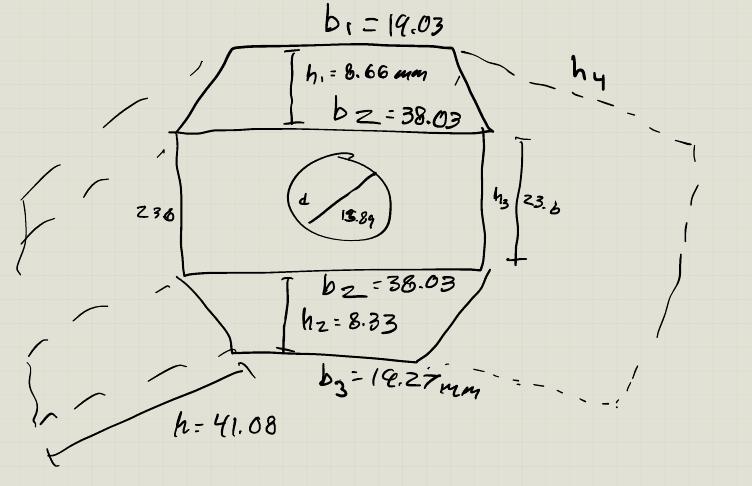 b1 = 19.03
h1 = 8.66 mm
h4
b2 = 38.03
23.6
d
15.89
h3
23.6
b2 = 38.03
h2 = 8.33
b3 = 19.27mm
h = 41.08